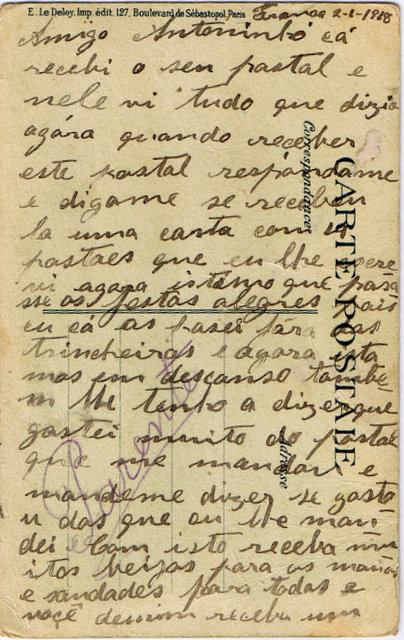 E. Le Deley, Imp. édit. 127, Boulevard de Sébastopol, Paris
França 2-1-1918
Amigo Antoninho cá
recebi o seu postal e
nele vi tudo que dizia
agóra quando receber
este postal respondame
e digame se recebeu
la uma carta com
postaes que eu lhe escre
vi agora istimo que pasa
sse as festas alegres pois
eu cá as pasei pára as
trincheiras e agora esta
mos em descanso també
m lhe tenho a dizer que
gostei muito do postal
que me mandou e
mandeme dizer se gosto
u das que eu lhe man
dei Com isto receba mu
itos beizos para os manos
e saudades para todas e
você receba um
CARTE POSTALE
Correspondance
Adresse
Parente